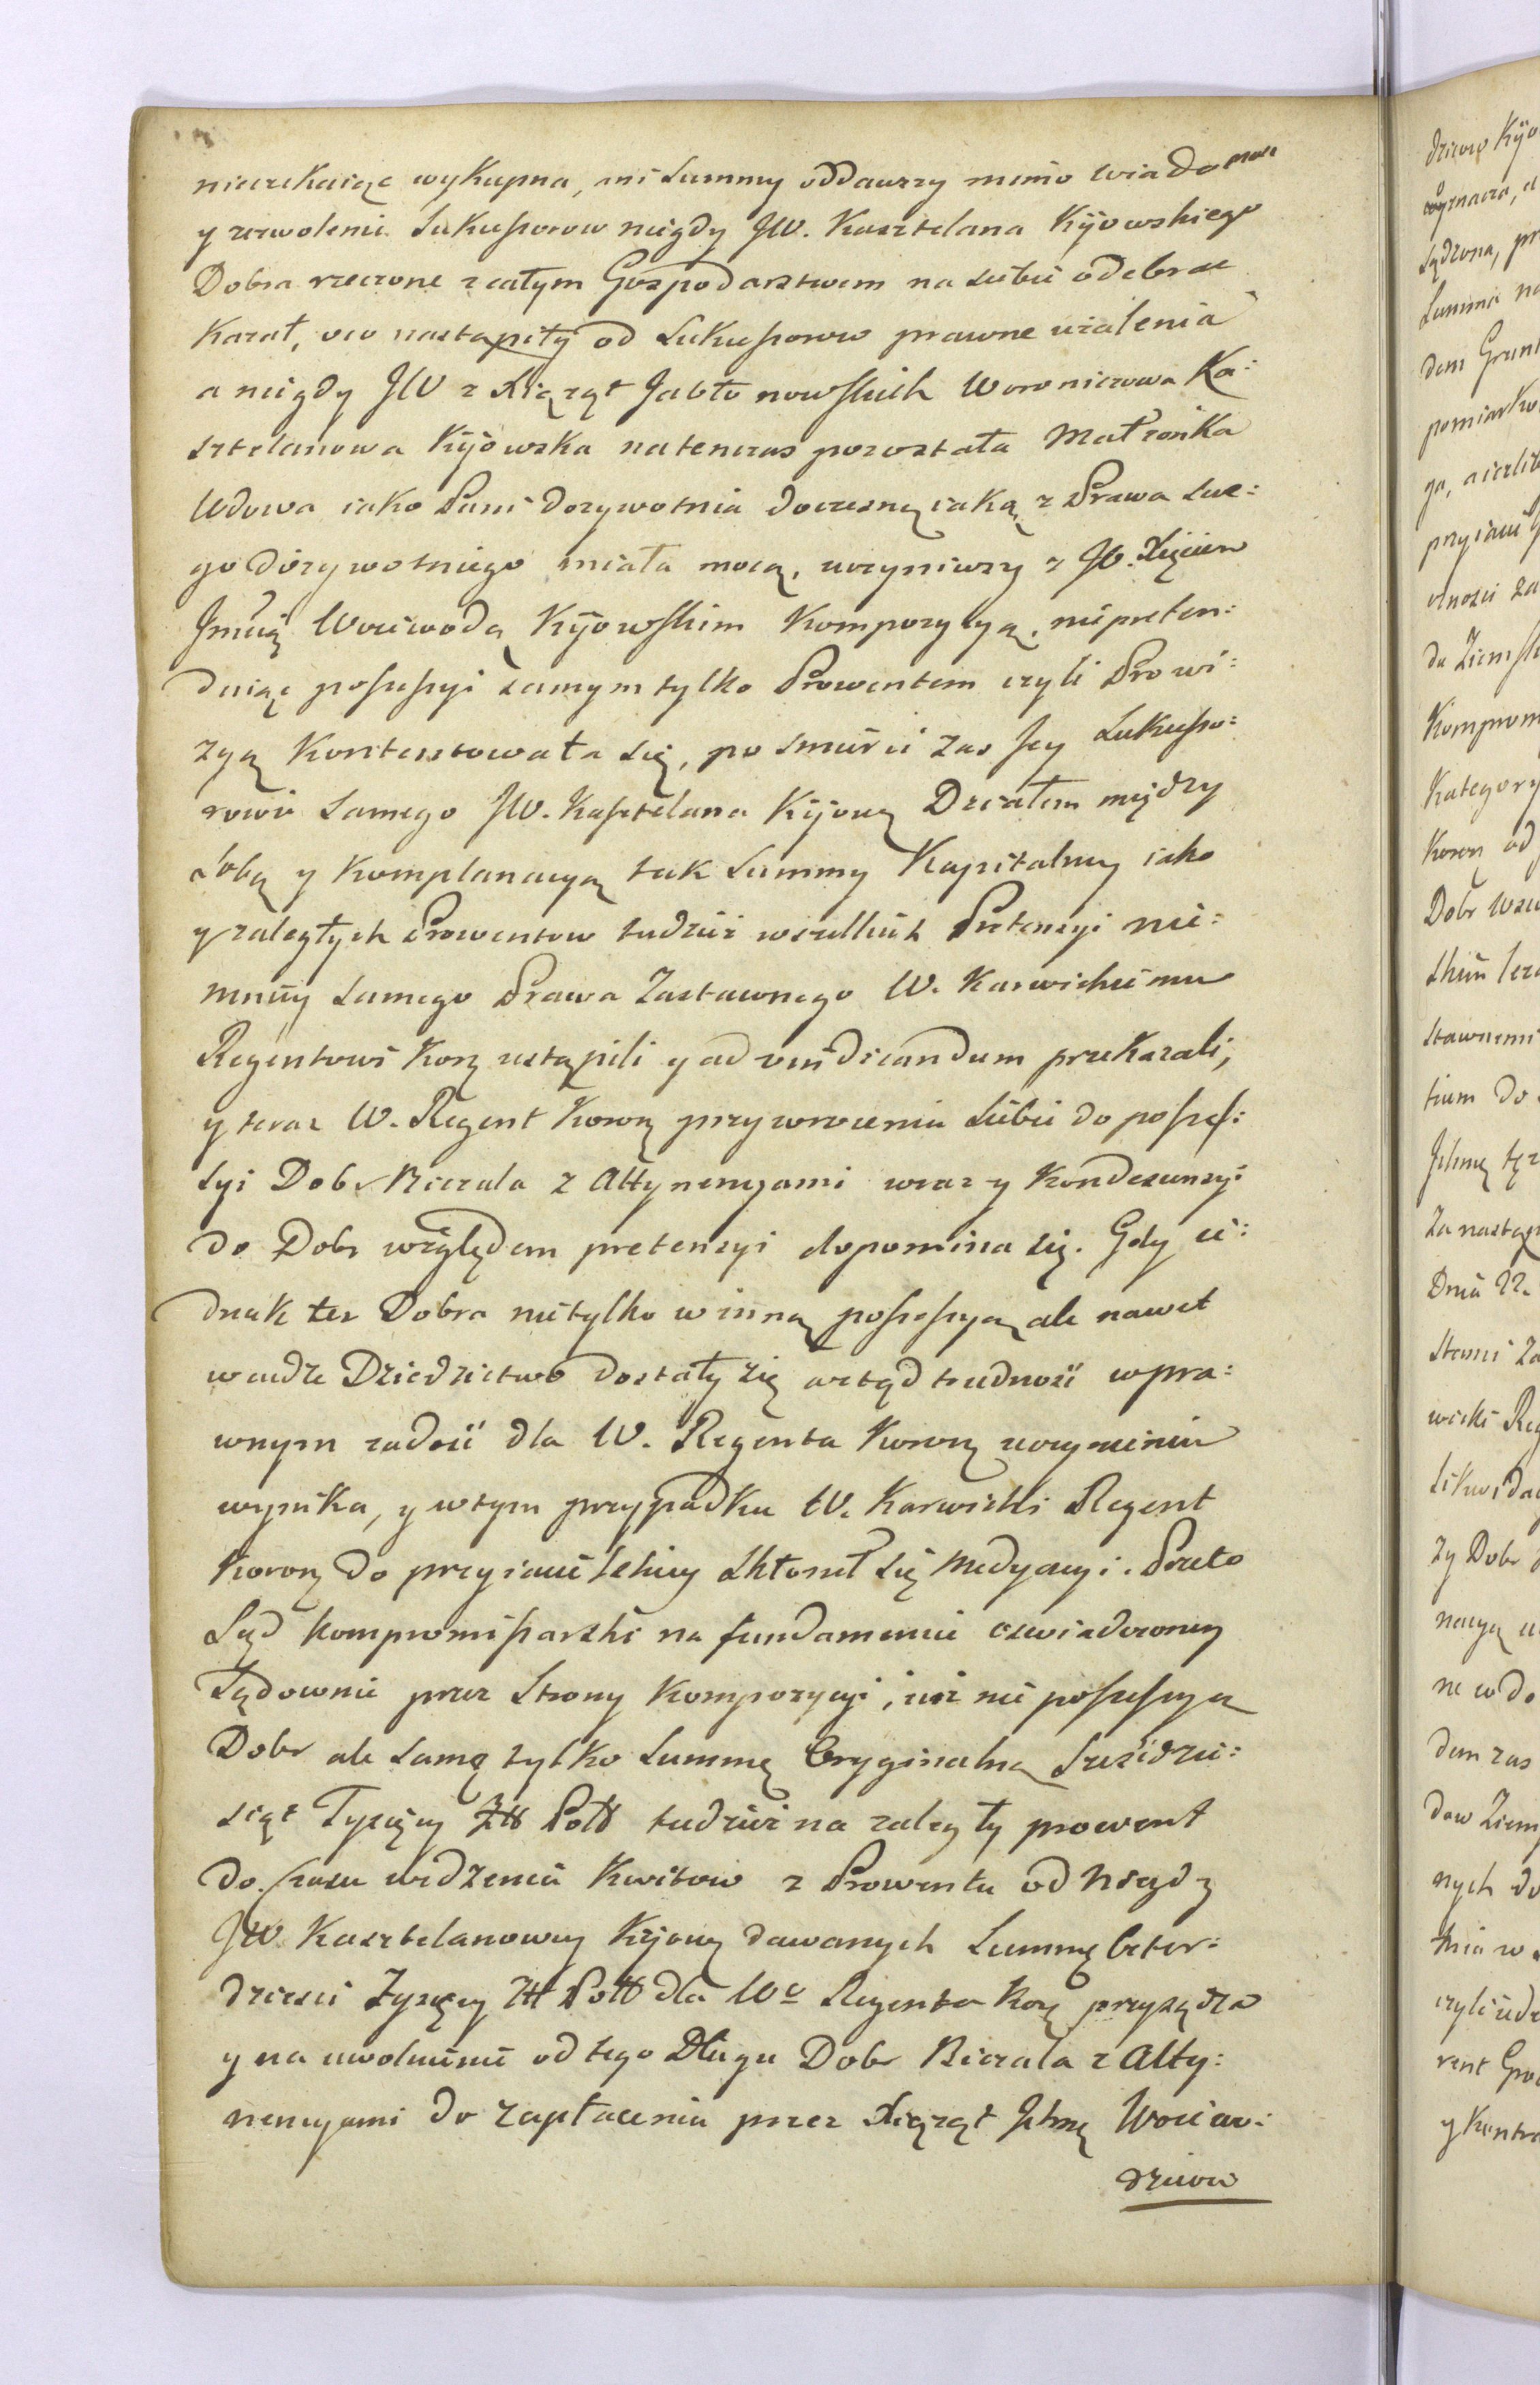 nieczekaiąc wykupna, ani Summy oddawszy mimo wiadomość
y zezwolenie Sukcessorow niegdy JW. Kasztelana Kijowskiego
Dobra rzeczone z całym Gospodarstwem na siebie odebrać
kazał, oco nastąpiły od Sukcessorow prawne użalenia
a niegdy JW z Xiążąt Jabłonowskich Woroniczowa Ka:
sztelanowa Kijowska natenczas pozostała Małżonka
Wdowa iako Pani dożywotnia doczesną iaką z Prawa swe:
go dożywotniego miała mocą, uczyniwszy z JO. Xięciem
Jmcią Woiewodą Kijowskim Kompozycyą, niepreten:
duiąc possessyi samym tylko Prowentem czyli Prowi:
zyą kontentowała się, po śmierci zaś Jey Sukcesso:
rowie samego JW. Kasztelana Kijowẹ Działem między
sobą y Komplanacyą tak Summy Kapitalney iako
y zaległych Prowentow tudzież wszelkich Pretensyi nie:
mniey samego Prawa Zastawnego W. Karwickiemu
Regentowi Korẹ ustąpili y ad vindicandum przekazali,
y teraz W. Regent Koronẹ przywrocenia siebie do posses:
syi Dobr Biczala z Attynencyami wraz y Kondescensyi
do Dobr względem pretensyi dopomina się. Gdy ie:
dnak też Dobra nietylko w inną possessyą ale nawet
w cudze Dziedzictwo dostały się ztąd trudność w pra:
wnym zadość dla W. Regenta Koronẹ uczynieniu
wynika, y w tym przypadku W. Karwicki Regent
Koronẹ do przyiacielskiey skłonił się Medyacyi. Przeto
Sąd kompromissarski na fundamencie oświadczoney
Sądownie przez Strony Kompozycyi, iuż nie possessyą
Dobr ale samą tylko Summę Oryginalną Sześćdzie:
siąt Tysięcy Złł Poll tudzież na zaległy prowent
do czasu widzenia Kwitow z Prowentu od Niegdy
JW Kasztelanowey Kijowẹ dawanych Summę Czter:
dzieści Tysięcy Złł Poll dla Wo Regenta Korẹ przysądza
y na uwolnienie od tego Długu Dobr Biczala z Atty:
nencyami do zapłacenia przez Xiążąt Jchmẹ Woiew:
dziców